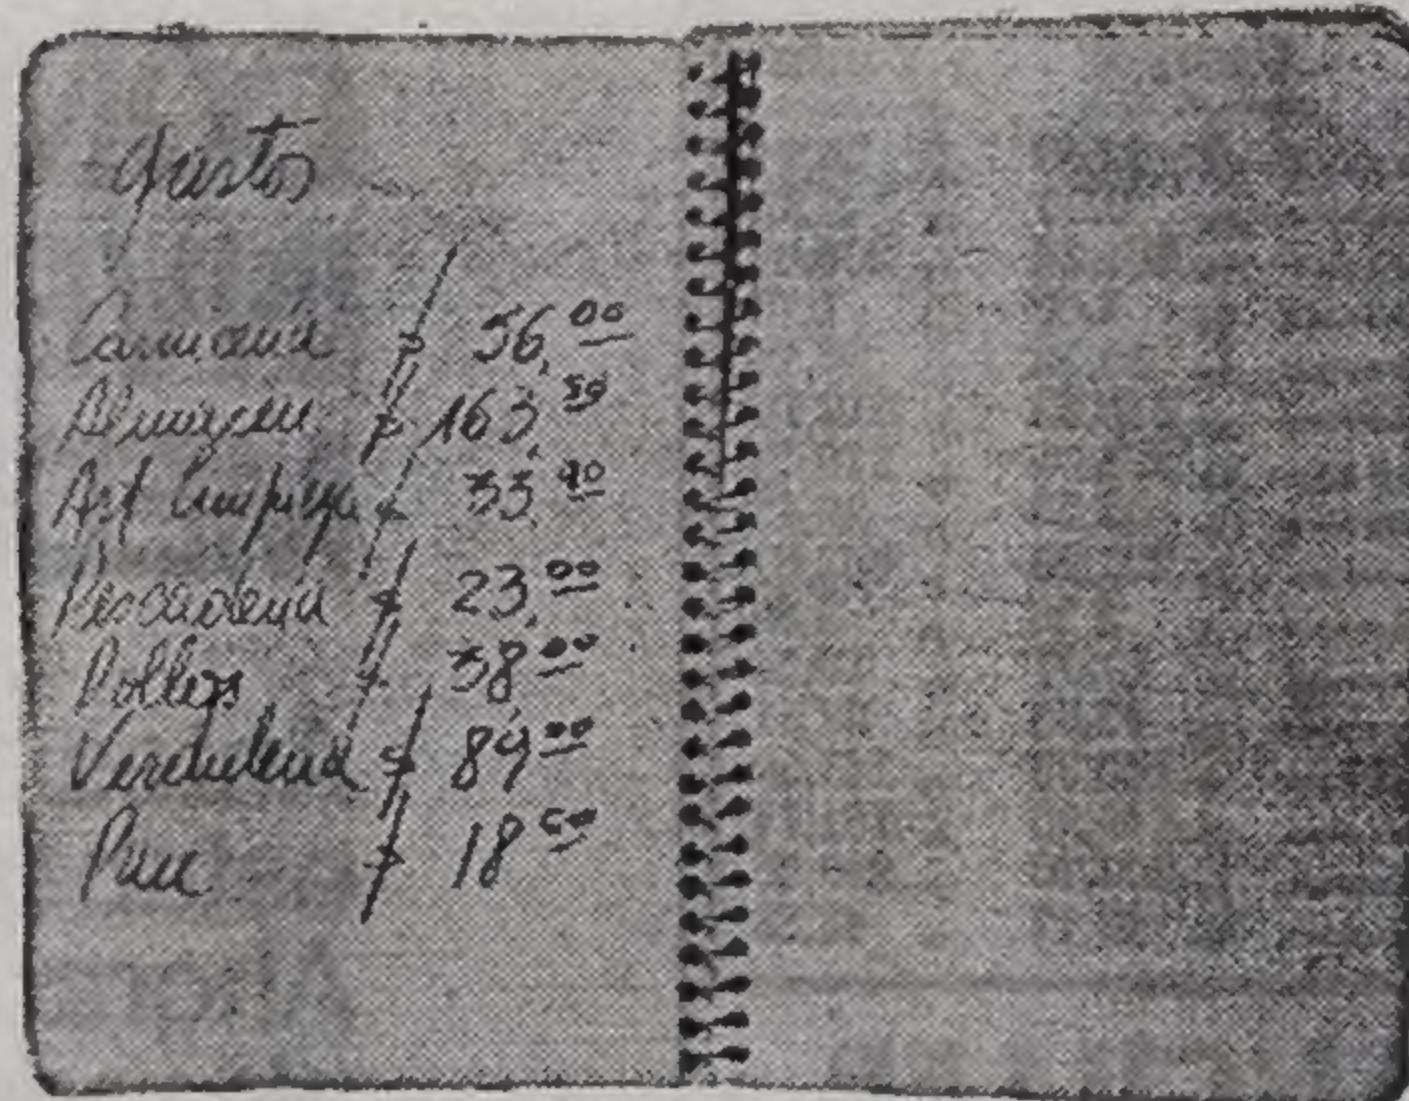 Gastos
Carniceria $ 56,00
Almacen $ 163,80
Art limpieza $ 33,90
Pescaderia $ 23,00
Pollers $ 38,00
Verduleria $ 89,00
Pan $ 18,50